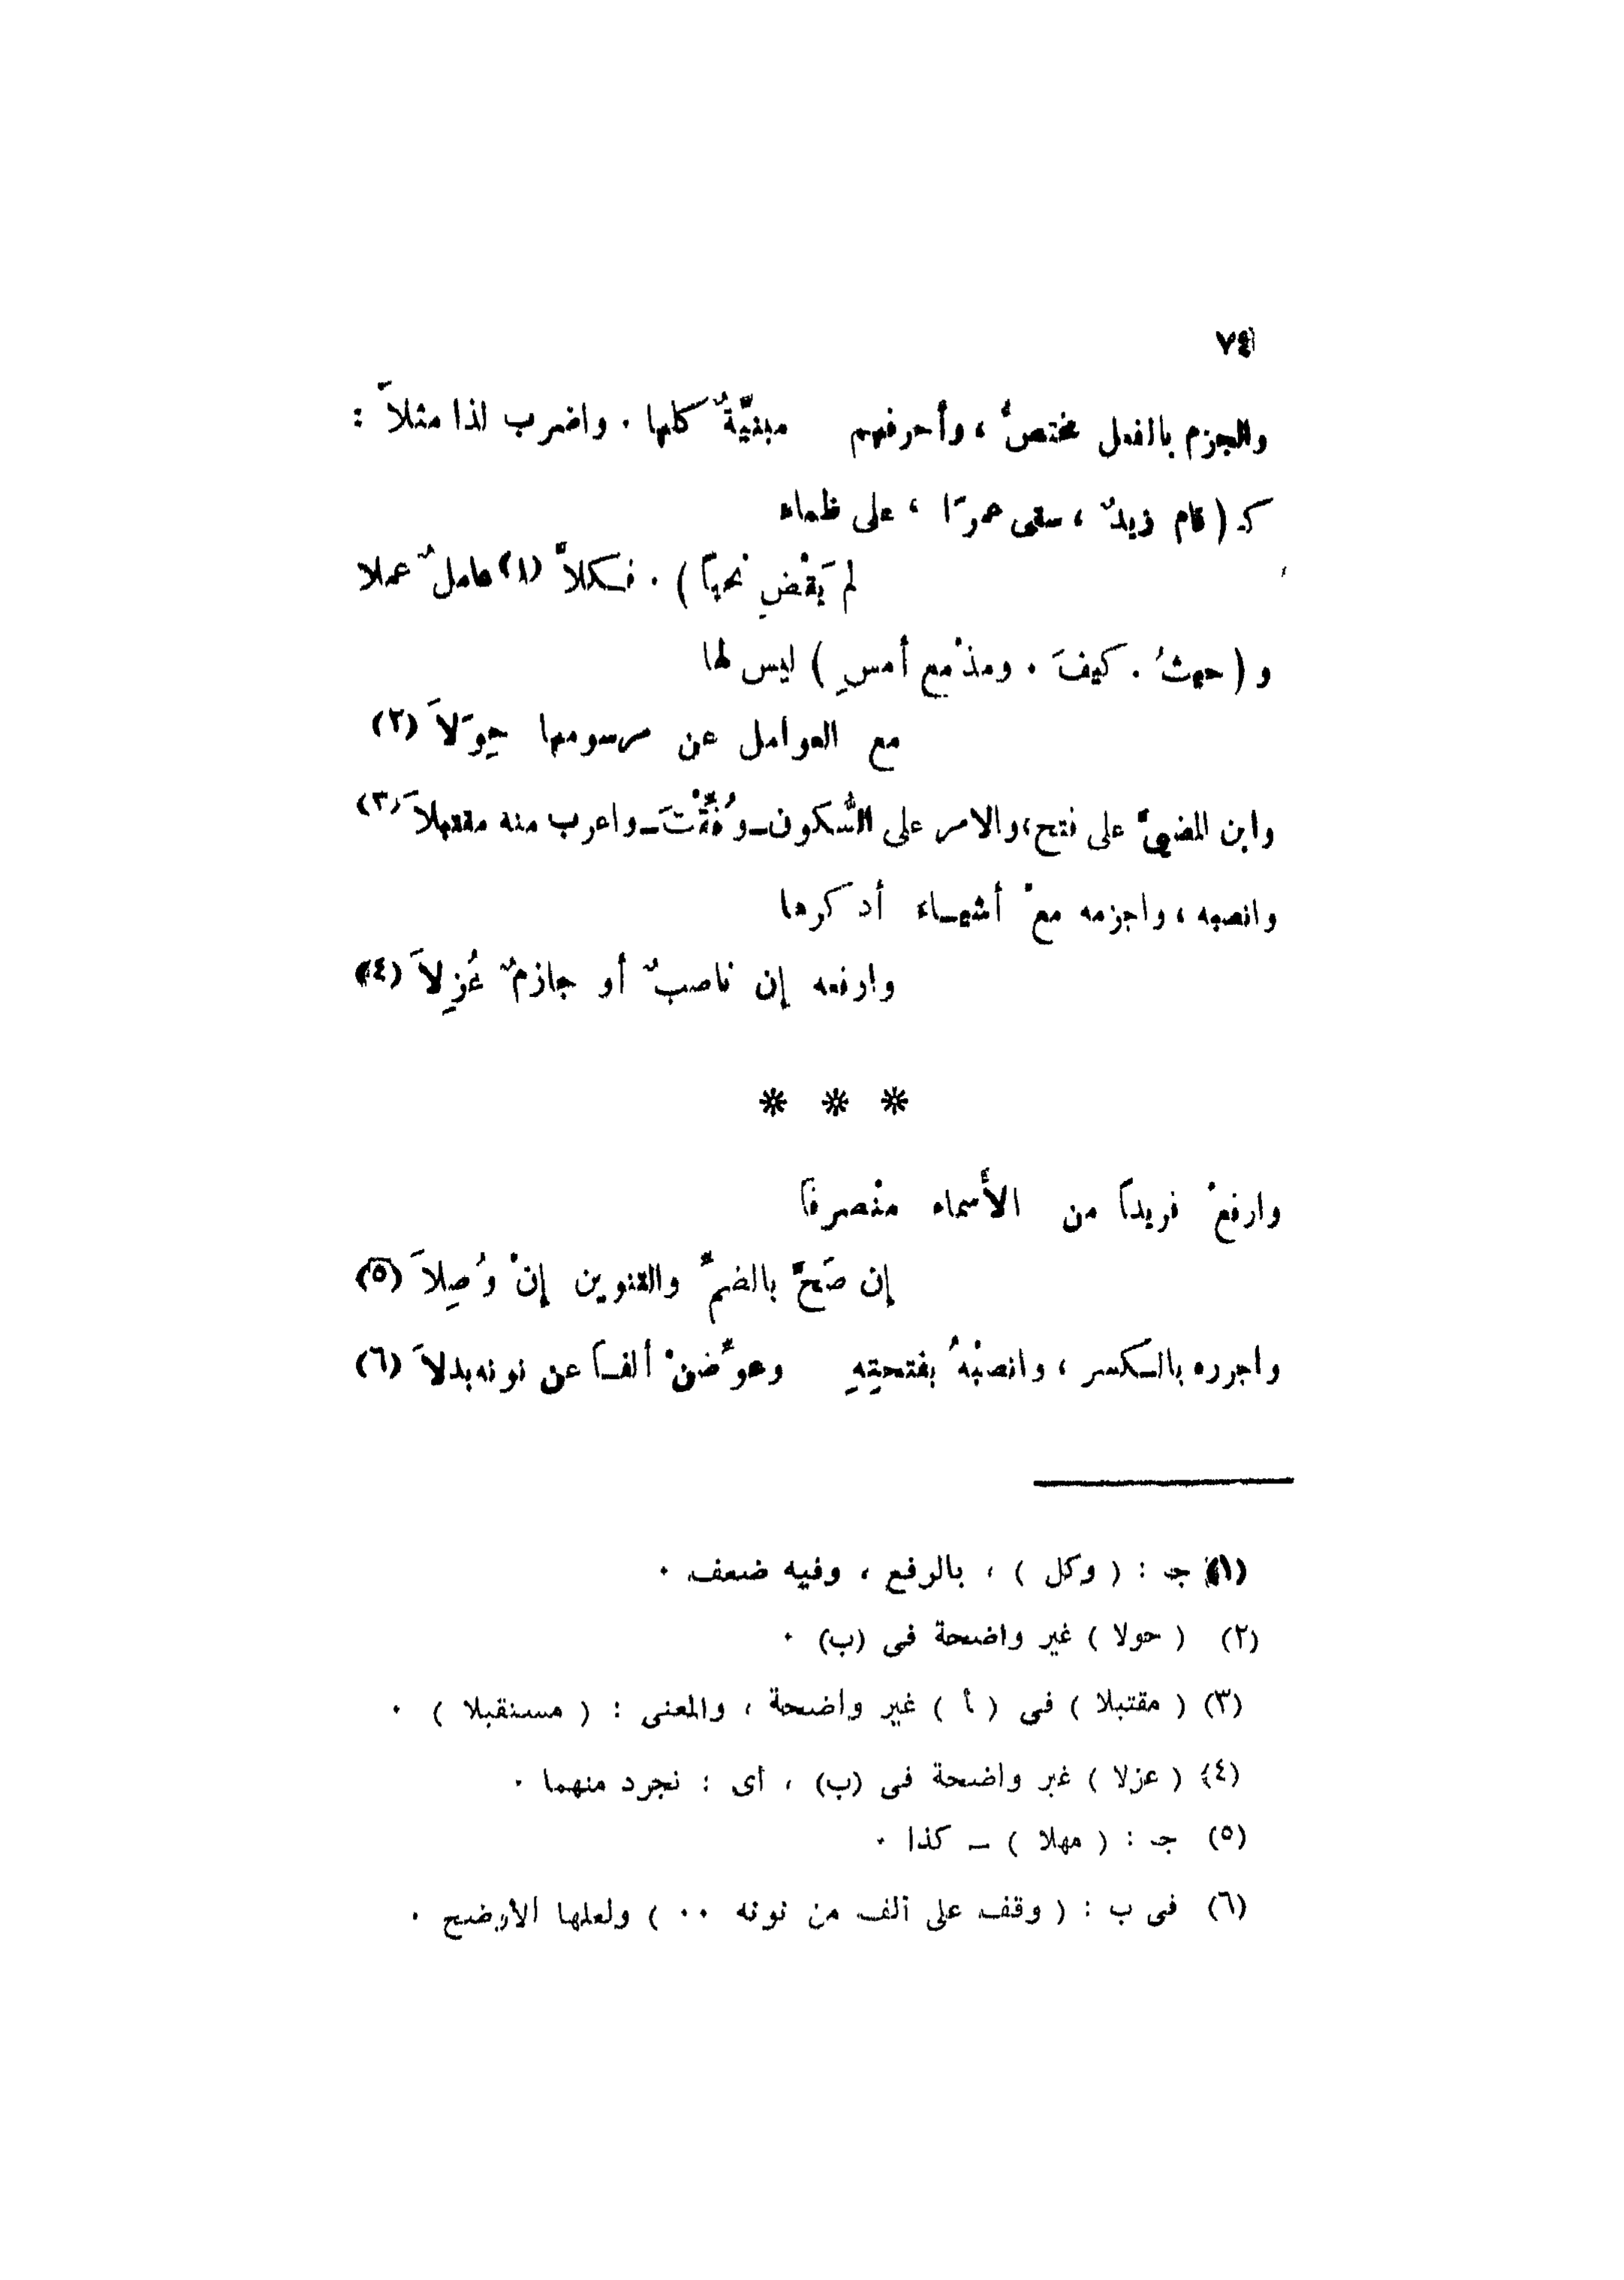 ٧٤
والجزم بالفعل مختصٌّ ، وأحرفهم مبنيّةٌ كلها . واضرب لذا مثلاً :
كـ ( قام زيدٌ ، سقى عمرًا ، على ظماء
لم يَقْضِ نحباً ) . فكلاًّ (١) عاملٌ عملا
و ( حيثُ . كيفَ . ومذْ مع أمسِ ) ليس لها
مع العوامل عن مرسومها حِوَلاَ (٢)
وابن المضيّ على فتح ، والامر على السُّكون ــ وُفِّقْتَ ــ واعرب منه مقتبلاَ (٣)
وانصبه ، واجزمه معْ أشياء أذكرها
وارفعه إن ناصبٌ أو جازمٌ عُزِلاَ (٤)
* * *
وارفعْ فريداً من الأسماء منْصرفاً
إن صَحَّ بالضمِّ والتنوين إنْ وُصِلاَ (٥)
واجرره بالكسر ، وانصبْهُ بفتحتِهِ وعوِّضنْ ألفاً عن نونه بدلاَ (٦)
(١) جـ : ( وكل ) ، بالرفع ، وفيه ضعف .
(٢) ( حولا ) غير واضحة فى (ب) .
(٣) ( مقتبلا ) فى ( أ ) غير واضحة ، والمعنى : ( مستقبلا ) .
(٤) ( عزلا ) غير واضحة فى (ب) ، أى : تجرد منهما .
(٥) جـ : ( مهلا ) ــ كذا .
(٦) فى ب : ( وقف على ألف من نونه ٠٠ ) ولعلها الأوضح .